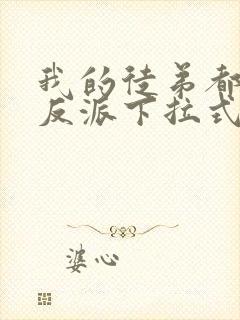 我的徒弟都
反派下拉式
婆心